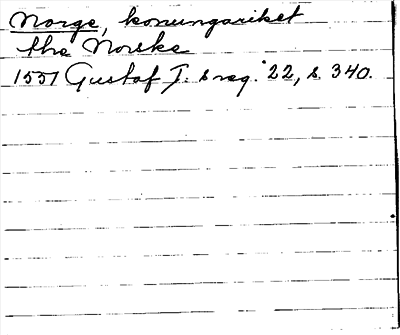 Norge, konungariket
the Norske
1551 Gustaf I:s reg. 22, s. 340.